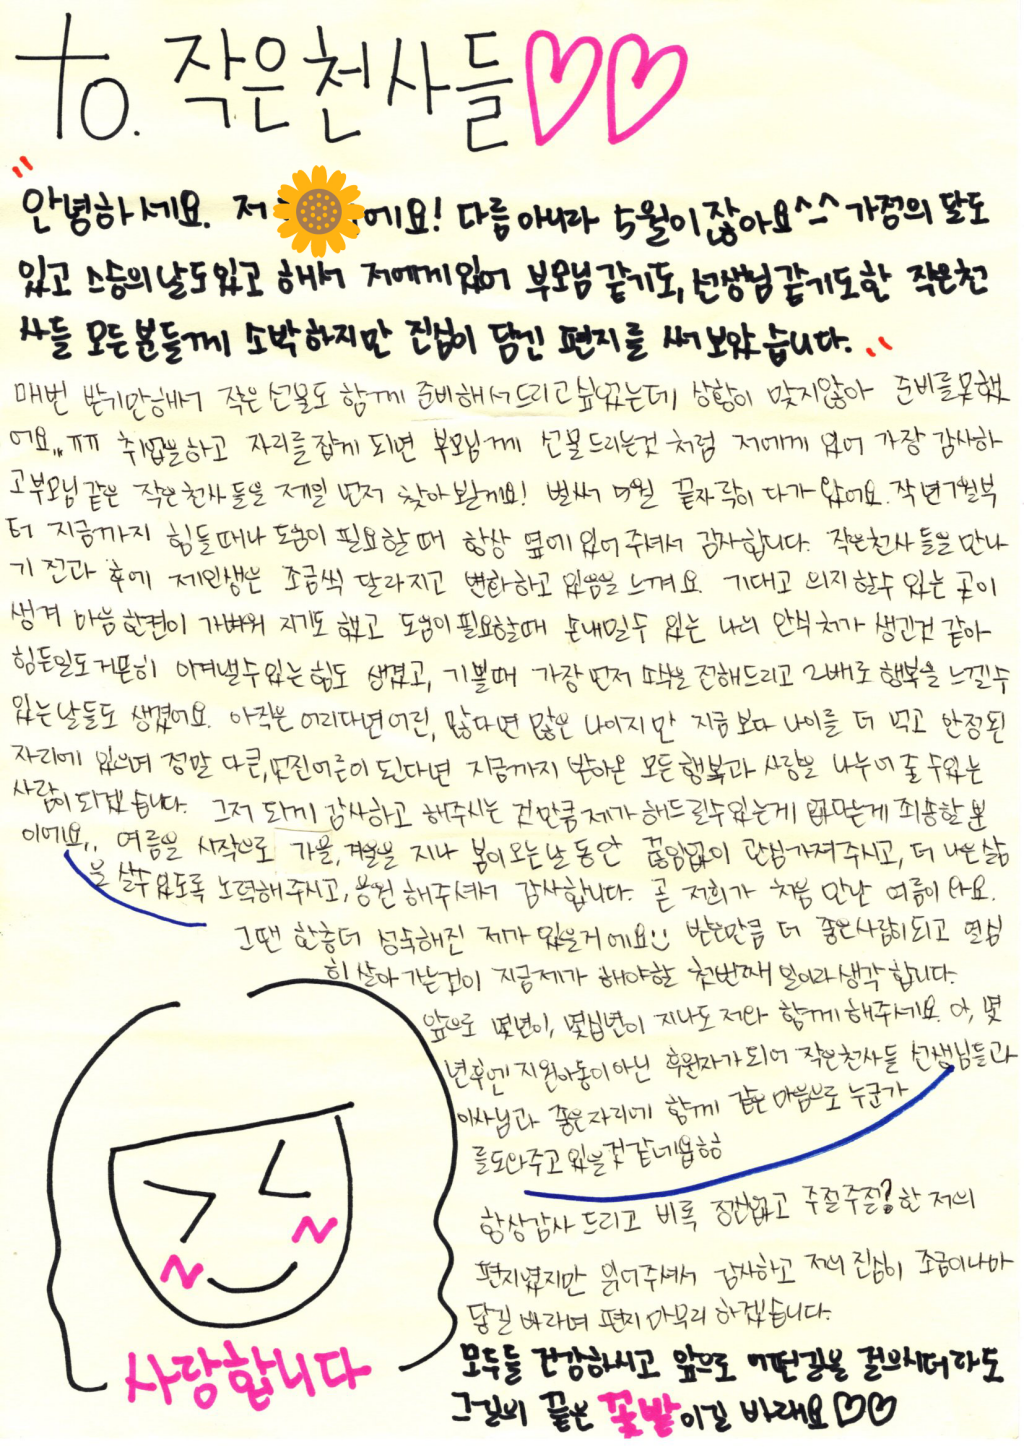 to. 작은천사들♡♡
"안녕하세요. 저 에요! 다름아니라 5월이잖아요^^ 가정의 달도
있고 스승의날도있고 해서 저에게있어 부모님같기도, 선생님같기도한 작은천
사들 모든분들께 소박하지만 진심이 담긴 편지를 써보았습니다."
매번 받기만해서 작은선물도 함께 준비해서드리고싶었는데 상황이 맞지않아 준비를못했
어요,,ㅠㅠ 취업을하고 자리를잡게 되면 부모님께 선물드리는것처럼 저에게 있어 가장 감사하
고부모님같은 작은천사들을 제일 먼저 찾아뵐게요! 벌써 5월 끝자락이 다가왔어요. 작년7월부
터 지금까지 힘들때나 도움이 필요할때 항상 옆에있어주셔서 감사합니다. 작은천사들을만나
기 전과 후에 제인생은 조금씩 달라지고 변화하고 있음을 느껴요. 기대고 의지할수 있는 곳이
생겨 마음한편이 가벼워 지기도 했고 도움이필요할때 손내밀수 있는 나의 안식처가 생긴것 같아
힘든일도거뜬히 이겨낼수있는힘도 생겼고, 기쁠때 가장먼저 소식을전해드리고 2배로 행복을 느낄수
있는날들도 생겼어요. 아직은 어리다면어린, 많다면 많은 나이지만 지금보다 나이를 더 먹고 안정된
자리에 있으며 정말 다큰,멋진어른이 된다면 지금까지 받아온 모든행복과 사랑을 나누어줄수있는
사람이되겠습니다. 그저 되게 감사하고 해주시는 것만큼제가 해드릴수있는게 없다는게 죄송할뿐
이에요,, 여름을 시작으로 가을,겨울을 지나 봄이오는날동안 끊임없이 관심가져주시고, 더 나은삶
을 살수있도록 노력해주시고, 응원해주셔서 감사합니다. 곧 저희가 처음 만난 여름이와요.
그땐 한층더 성숙해진 제가 있을거에요:) 받은만큼 더 좋은사람이되고 열심
히 살아가는것이 지금제가 해야할 첫번째 일이라생각합니다.
앞으로 몇년이, 몇십년이 지나도 저와 함께해주세요. 아, 몇
년후엔 지원아동이아닌 후원자가되어 작은천사들 선생님들과
이사님과 좋은자리에 함께 같은 마음으로 누군가
를도와주고있을것같네욥ㅎㅎ
항상감사드리고 비록 정신없고 주절주절?한 저의
편지였지만 읽어주셔서 감사하고 저의 진심이 조금이나마
닿길 바라며 편지 마무리 하겠습니다.
모두들 건강하시고 앞으로 어떤길을 걸으시더라도
그길의 끝은 꽃밭이길 바래요♡♡
사랑합니다